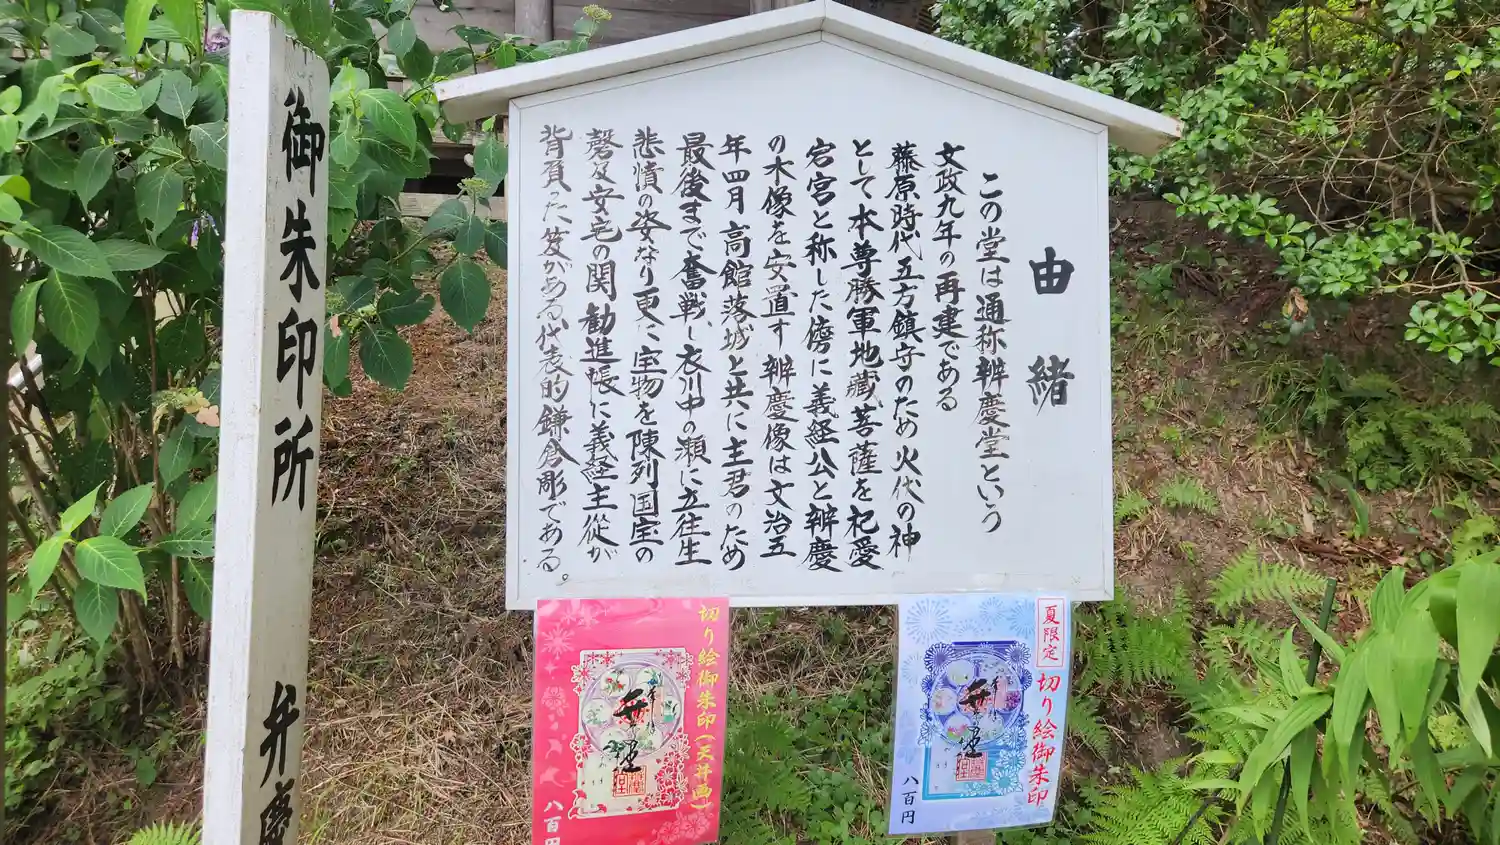 由緒
この堂は通称辨慶堂という
文政九年の再建である
藤原時代五方鎮守のため火伏の神
として本尊勝軍地蔵菩薩を祀愛
宕宮と称した傍に義経公と辨慶
の木像を安置す辨慶像は文治五
年四月高館落城と共に主君のため
最後まで奮戦し、衣川中の瀬に立往生
悲憤の姿なり更に宝物を陳列国宝の
磬及安宅の関勧進帳に義経主従が
背負った笈がある代表的鎌倉彫である。
御朱印所
弁慶
切り絵御朱印(天井画)
八百円
夏限定
切り絵御朱印
八百円